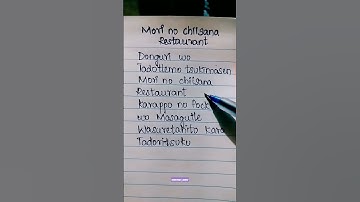 Mori no chiisana
Restaurant
Donguri wo
Tadottemo tsukimasen
Mori no chiisana
Restaurant
Karappo no Pock
wo Masagutte
Wasuretahito Kara
Tadoritsuku